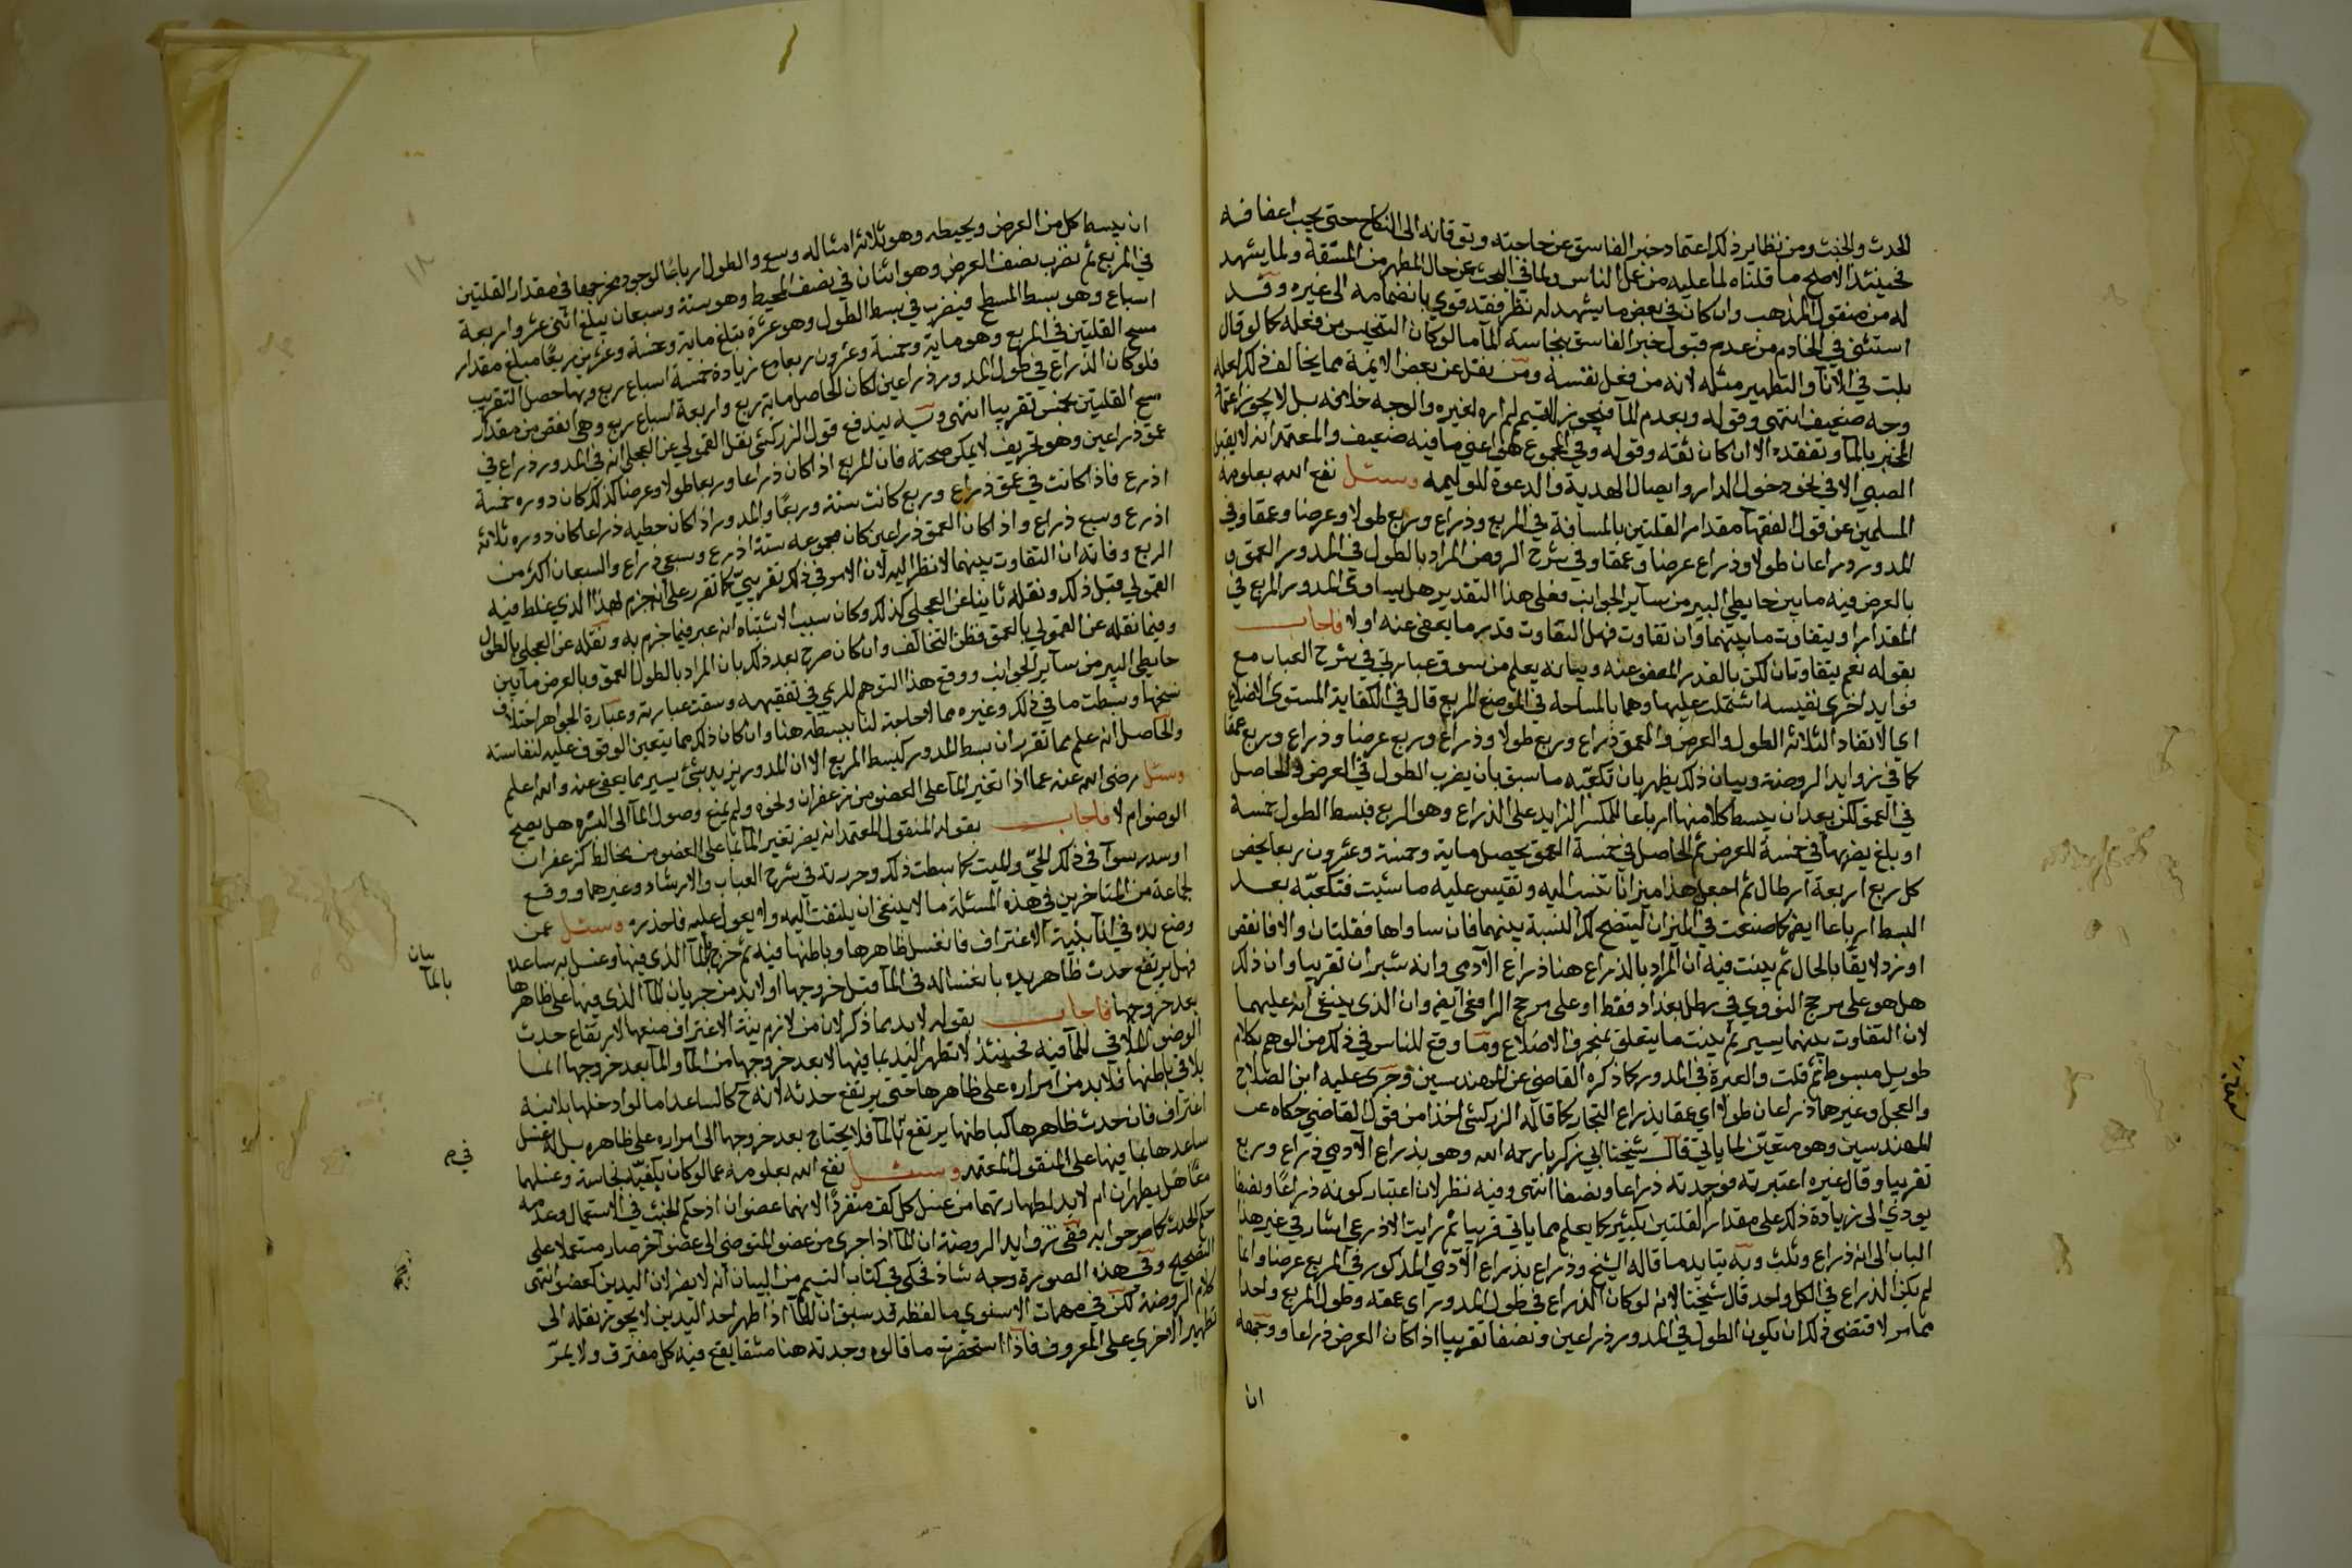 للحدث والخبث ومن نظاير ذلك اعتماد خبر الفاسق عن حاجته وتوقانه الى النكاح حتى يجب اعفافه
فحينئذ الاصح ما قلناه لما عليه من عمل الناس ولما في البحث عن حال المطهر من المشقة ولما يشهد
له من منقول المذهب وان كان في بعض ما يشهد له نظر فقد قوي بانضمامه الى غيره وقد
استثنى في الخادم من عدم قبول خبر الفاسق بنجاسة الماء ما لو كان التنجيس من فعله كما لو قال
بلت في الاناء والتطهير مثله لانه من فعل نفسه ومن نقل عن بعض الايمة مما يخالف ذلك لعله
وجه ضعيف انتهى وقوله وبعدم الماء فيجوز التيمم لم اره لغيره والوجه خلافه بل لا يجوز اعتماد
المخبر بالماء وتفقده الا ان كان ثقة وقوله وفي المجموع هنا اعني ما فيه ضعيف والمعتمد انه لا يقبل
الصبي الا في نحو دخول الدار وايصال الهدية والدعوة للوليمه وسئل نفع الله بعلومه
المسلمين عن قول الفقهاء مقدار القلتين بالمسافة في المربع وذراع وربع طولا وعرضا وعمقا وفي
المدور ذراعان طولا وذراع عرضا وعمقا وفي شرح الروض المراد بالطول في المدور العمق و
بالعرض فيه ما بين حايطي البير من ساير الجوانب فعلى هذا التقدير هل يساوي المدور المربع في
المقدار او يتفاوت ما بينهما وان تفاوت فهل التفاوت قدر ما يعفى عنه اولا فاجاب
بقوله نعم يتفاوتان لكن بالقدر المعفو عنه وبيانه يعلم من سوق عبارتي في شرح العباب مع
فوايد اخرى نفيسه اشتملت عليها وهما بالمساحه في الموضع المربع قال في الكفاية المستوى الاضلاع
اي الابعاد الثلاثه الطول والعرض والعمق ذراع وربع طولا وذراع وربع عرضا وذراع وربع عمقا
كما في زوايد الروضة وبيان ذلك يظهر بان تكعبه ما سبق بان يضرب الطول في العرض والحاصل
في العمق لكن بعد ان يبسط كلا منها ارباعا للكسر الزايد على الذراع وهو الربع فبسط الطول خمسة
او بلغ يضربها في خمسة للعرض ثم الحاصل في خمسة العمق يحصل ماية وخمسة وعشرون ربعا يخص
كل ربع اربعة ارطال ثم اجعل هذا ميزانا تنسب اليه وتقيس عليه ما شيت فتكعبه بعد
البسط ارباعا ايضا كما صنعت في الميزان ليتضح لك النسبة بينهما فان ساواها فقلتان والا فانقص
او زد لايقا بالحال ثم بينت فيه ان المراد بالذراع هنا ذراع الآدمي وانه شبران تقريبا وان ذلك
هل هو على مرجح النووي في رطل بغداد فقط او على مرجح الرافعي ايضا وان الذي ينبغي انه عليهما
لان التفاوت بينهما يسير ثم بينت ما يتعلق بمنحرف الاضلاع وما وقع للناس في ذلك من الوهم بكلام
طويل مبسوط ثم قلت والعبرة في المدور كما ذكره القاضي عن المهندسين وجرى عليه ابن الصلاح
والعجل وغيرها ذراعان طولا اي عمقا بذراع النجار كما قاله الزركشي اخذا من قول القاضي حكاه عن
المهندسين وهو متعين لما ياتي قال شيخنا ابي زكريا رحمه الله وهو بذراع الآدمي ذراع وربع
تقريبا وقال غيره اعتبرته فوجدته ذراعا ونصفا انتهى وفيه نظر لان اعتبار كونه ذراعا ونصفا
يودي الى زيادة ذلك على مقدار القلتين بكثير كما يعلم مما ياتي قريبا ثم رايت الاذرعي اشار في غير هذا
الباب الى انه ذراع وثلث وبه يتايد ما قاله الشيخ وذراع بذراع الآدمي المذكور في المربع عرضا وانما
لم يكن الذراع في الكل واحد قال شيخنا لانه لو كان الذراع في طول المدور اي عمقه وطول المربع واحدا
مما مر لاقتضى ذلك ان يكون الطول في المدور ذراعين ونصفا تقريبا اذا كان العرض ذراعا ووجهه
ان
ان يبسط كل من العرض ومحيطه وهو ثلاثة امثاله وسبع والطول ارباعا لوجود مخرجها في مقدار القلتين
في المربع ثم تضرب نصف العرض وهو اثنان في نصف المحيط وهو ستة وسبعان يبلغ اثني عشر واربعة
اسباع وهو بسط المسطح فيضرب في بسط الطول وهو عشرة يبلغ ماية وخمسة وعشرين ربعا مبلغ مقدار
مسح القلتين في المربع وهو ماية وخمسة وعشرون ربعا مع زيادة خمسة اسباع ربع وبها حصل التقريب
فلو كان الذراع في طول المدور ذراعين لكان الحاصل ماية ربع واربعة اسباع ربع وهي انقص من مقدار
مسح القلتين بخمس تقريبا انتهى وبه يندفع قول الزركشي نقل القمولي عن العجلي انه في المدور ذراع في
عمق ذراعين وهو تحريف لا يمكن صحته فان المربع اذا كان ذراعا وربعا طولا وعرضا كذلك كان دوره خمسة
اذرع فاذا كانت في عمق ذراع وربع كانت ستة وربعا والمدور اذا كان حطيه ذراعا كان دوره ثلاثة
اذرع وسبع ذراع واذا كان العمق ذراعين كان مجموعه ستة اذرع وسبعي ذراع والسبعان اكثر من
الربع وفاته ان التفاوت بينهما لا نظر اليه لان الامر في ذلك تقريبي كما تقرر على انه جزم لهذا الذي غلط فيه
القمولي قبل ذلك ونقله ثانيا عن العجلي كذلك وكان سبب الاشتباه انه عبر فيما جزم به ونقله عن العجلي بالطول
وفيما نقله عن القمولي بالعمق فظن التخالف وان كان صرح بعد ذلك بان المراد بالطول العمق وبالعرض ما بين
حايطي البير من ساير الجوانب ووقع هذا التوهم للريمي في تفقيهه وسقت عبارته وعبارة الجواهر اختلاف
نسخها وبسطت ما في ذلك وغيره مما لا حاجة لنا ببسطه هنا وان كان ذلك مما يتعين الوقوف عليه لنفاسته
والحاصل انه علم مما تقرر ان بسط المدور كبسط المربع الا ان المدور يزيد بشي يسير مما يعفى عنه والله اعلم
وسئل رضي الله عنه عما اذا تغير الماء على العضو من زعفران ونحوه ولم يمنع وصول الماء الى البشره هل يصح
الوضوء ام لا فاجاب بقوله المنقول المعتمد انه يضر تغير الماء بما على العضو من مخالط كزعفران
او سدر سوآ في ذلك الحي والميت كما بسطت ذلك وحررته في شرح العباب والارشاد وغيرهما ووقع
لجماعة من المتاخرين في هذه المسئلة ما لا ينبغي ان يلتفت اليه ولا يعول عليه فلحذره وسئل عمن
وضع يده في اناء بنية الاغتراف فانغسل ظاهرها وباطنها فيه ثم خرج بالماء الذي فيها وغسل به ساعدها
فهل يرتفع حدث ظاهر يده بانغساله في الماء قبل خروجها او لابد من جريان الماء الذي فيها على ظاهرها
بعد خروجها فاجاب بقوله لابد بما ذكر لان من لازم نية الاغتراف منعها لارتفاع حدث
الوضوء الملاقي للماء فيه فحينئذ لا تطهر اليد بما فيها الا بعد خروجها من الماء والماء بعد خروجها انما
يلاقي باطنها فلابد من امراره على ظاهرها حتى يرتفع حدثه لانه ح كالساعد اما لو ادخلها بلا نية
اغتراف فان حدث ظاهرها كباطنها يرتفع بالماء فلا يحتاج بعد خروجها الى امراره على ظاهره بل له غسل
ساعدها بما فيها على المنقول المعتمد وسئل نفع الله بعلومه عما لو كان بكفيه نجاسة وغسلهما
معا هل يطهران ام لابد لطهارتهما من غسل كل كف منفردا لانهما عضوان اذ حكم الخبث في الاستعمال وعدمه
حكم الحدث كما صرحوا به ففي زوايد الروضة ان الماء اذا جرى من عضو المتوضي الى عضو آخر صار مستعملا على
الصحيح وفي هذه الصورة وجه شاذ محكي في كتاب التيمم من البيان انه لا يضر لان اليدين كعضو انتهى
كلام الروضة لكن في مهمات الاسنوي ما لفظه قد سبق ان الماء اذا طهر احد اليدين لا يجوز نقله الى
تطهير الاخرى على المعروف فاذا استحضرت ما قالوه وجدته هنا مشقا يقع فيه كل مغترف ولا يمر
بيان
بالماء
في م